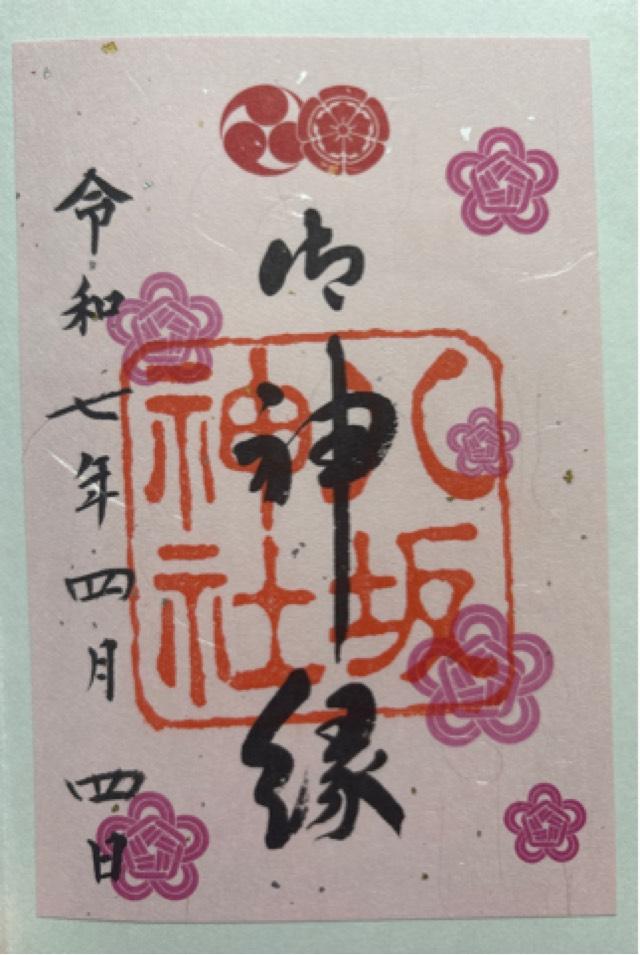 御神縁
八坂
神社
令和七年四月四日